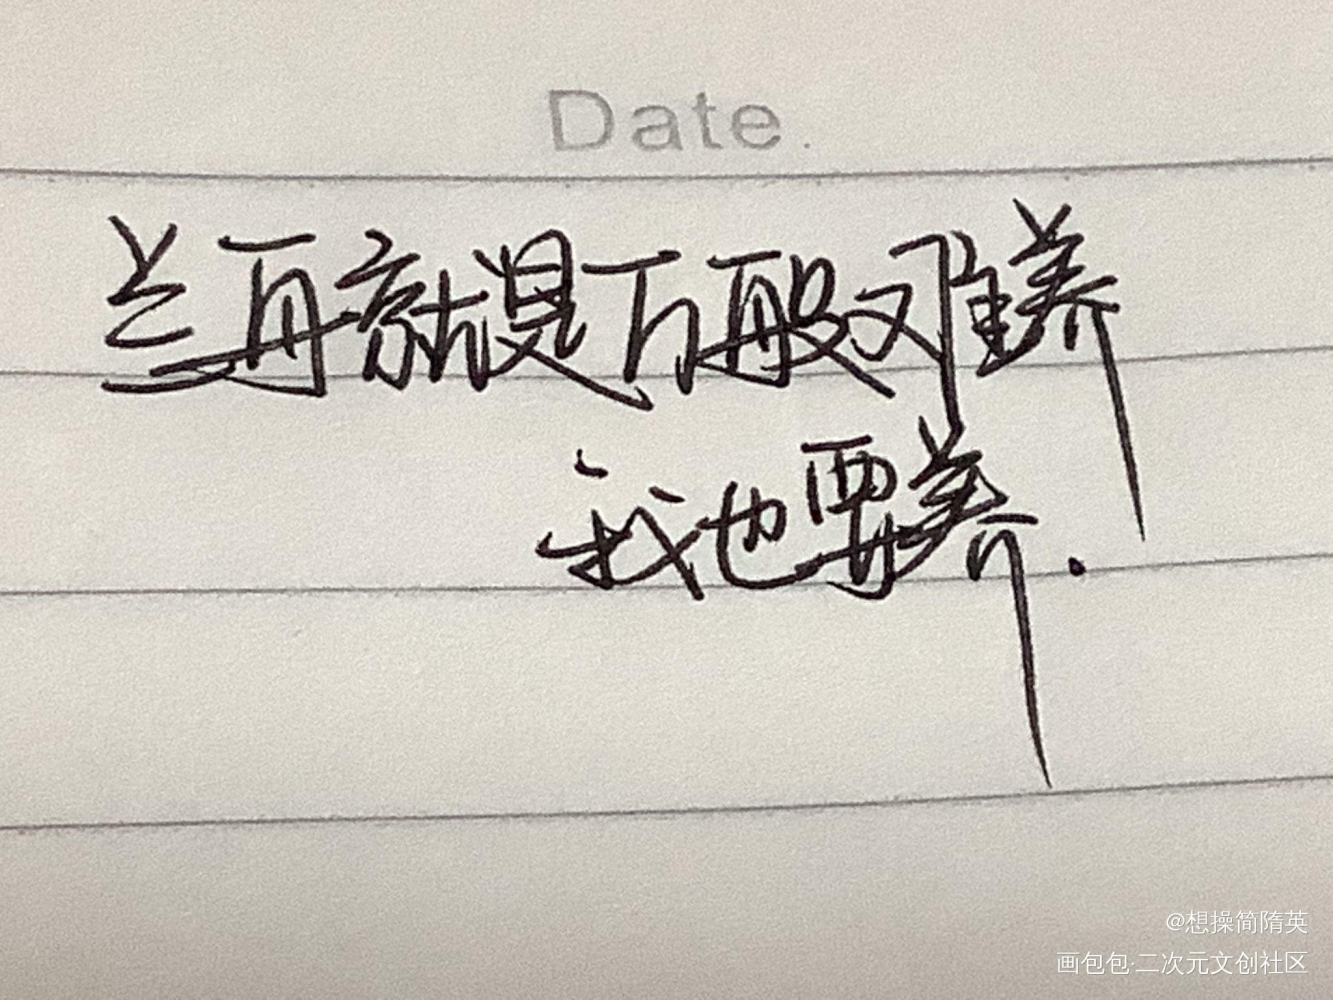 Date.
兰再就是万般难养
我也要养.
@想操简隋英
画包包·二次元文创社区